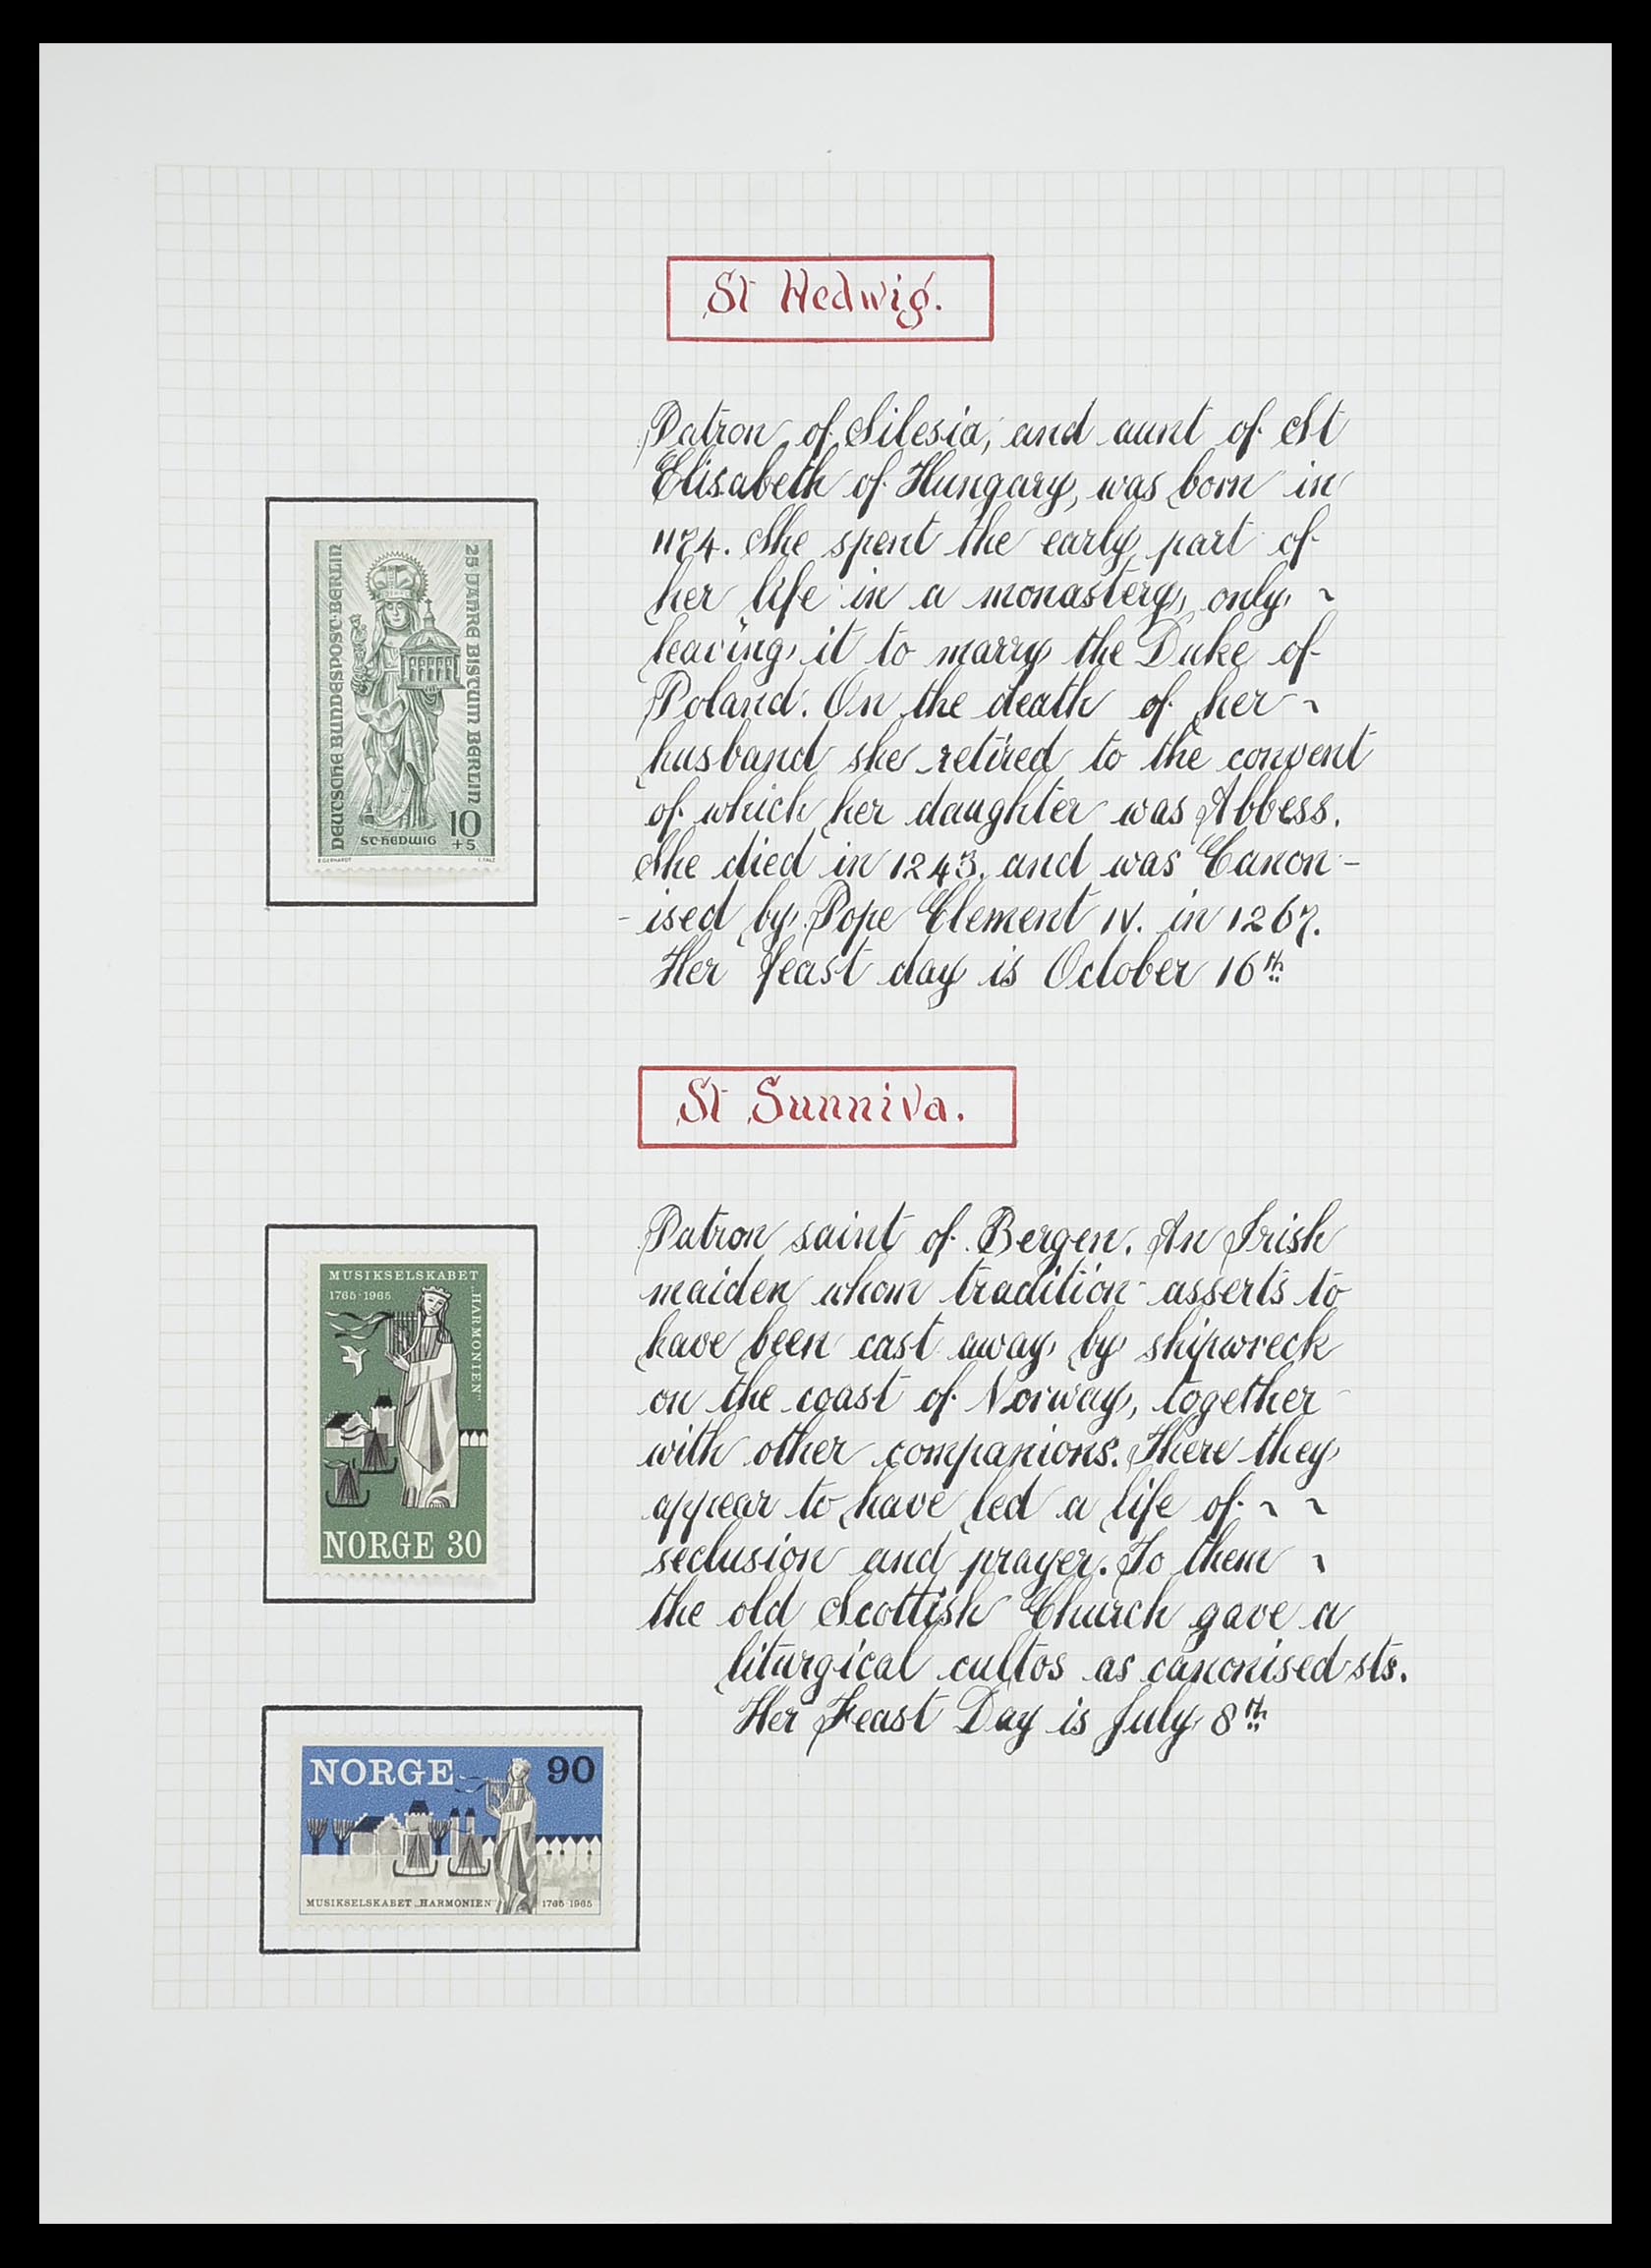 St Hedwig.
Patron of Silesia, and aunt of St
Elisabeth of Hungary, was born in
1174. She spent the early part of
her life in a monastery, only ~
leaving it to marry the Duke of
Poland. On the death of her ~
husband she retired to the convent
of which her daughter was Abbess.
She died in 1243, and was Canon-
-ised by Pope Clement IV. in 1267.
Her feast day is October 16th
DEUTSCHE BUNDESPOST·BERLIN
25 JAHRE BISTUM BERLIN
10
+5
ST·HEDWIG
E GERHARDT
E FALZ
St Sunniva.
Patron saint of Bergen. An Irish
maiden whom tradition asserts to
have been cast away by shipwreck
on the coast of Norway, together
with other companions. There they
appear to have led a life of ~ ~
seclusion and prayer. To them ~
the old Scottish Church gave a
liturgical cultos as canonised sts.
Her Feast Day is July 8th
MUSIKSELSKABET
1765·1965
„HARMONIEN"
NORGE 30
NORGE 90
MUSIKSELSKABET „HARMONIEN" 1765·1965